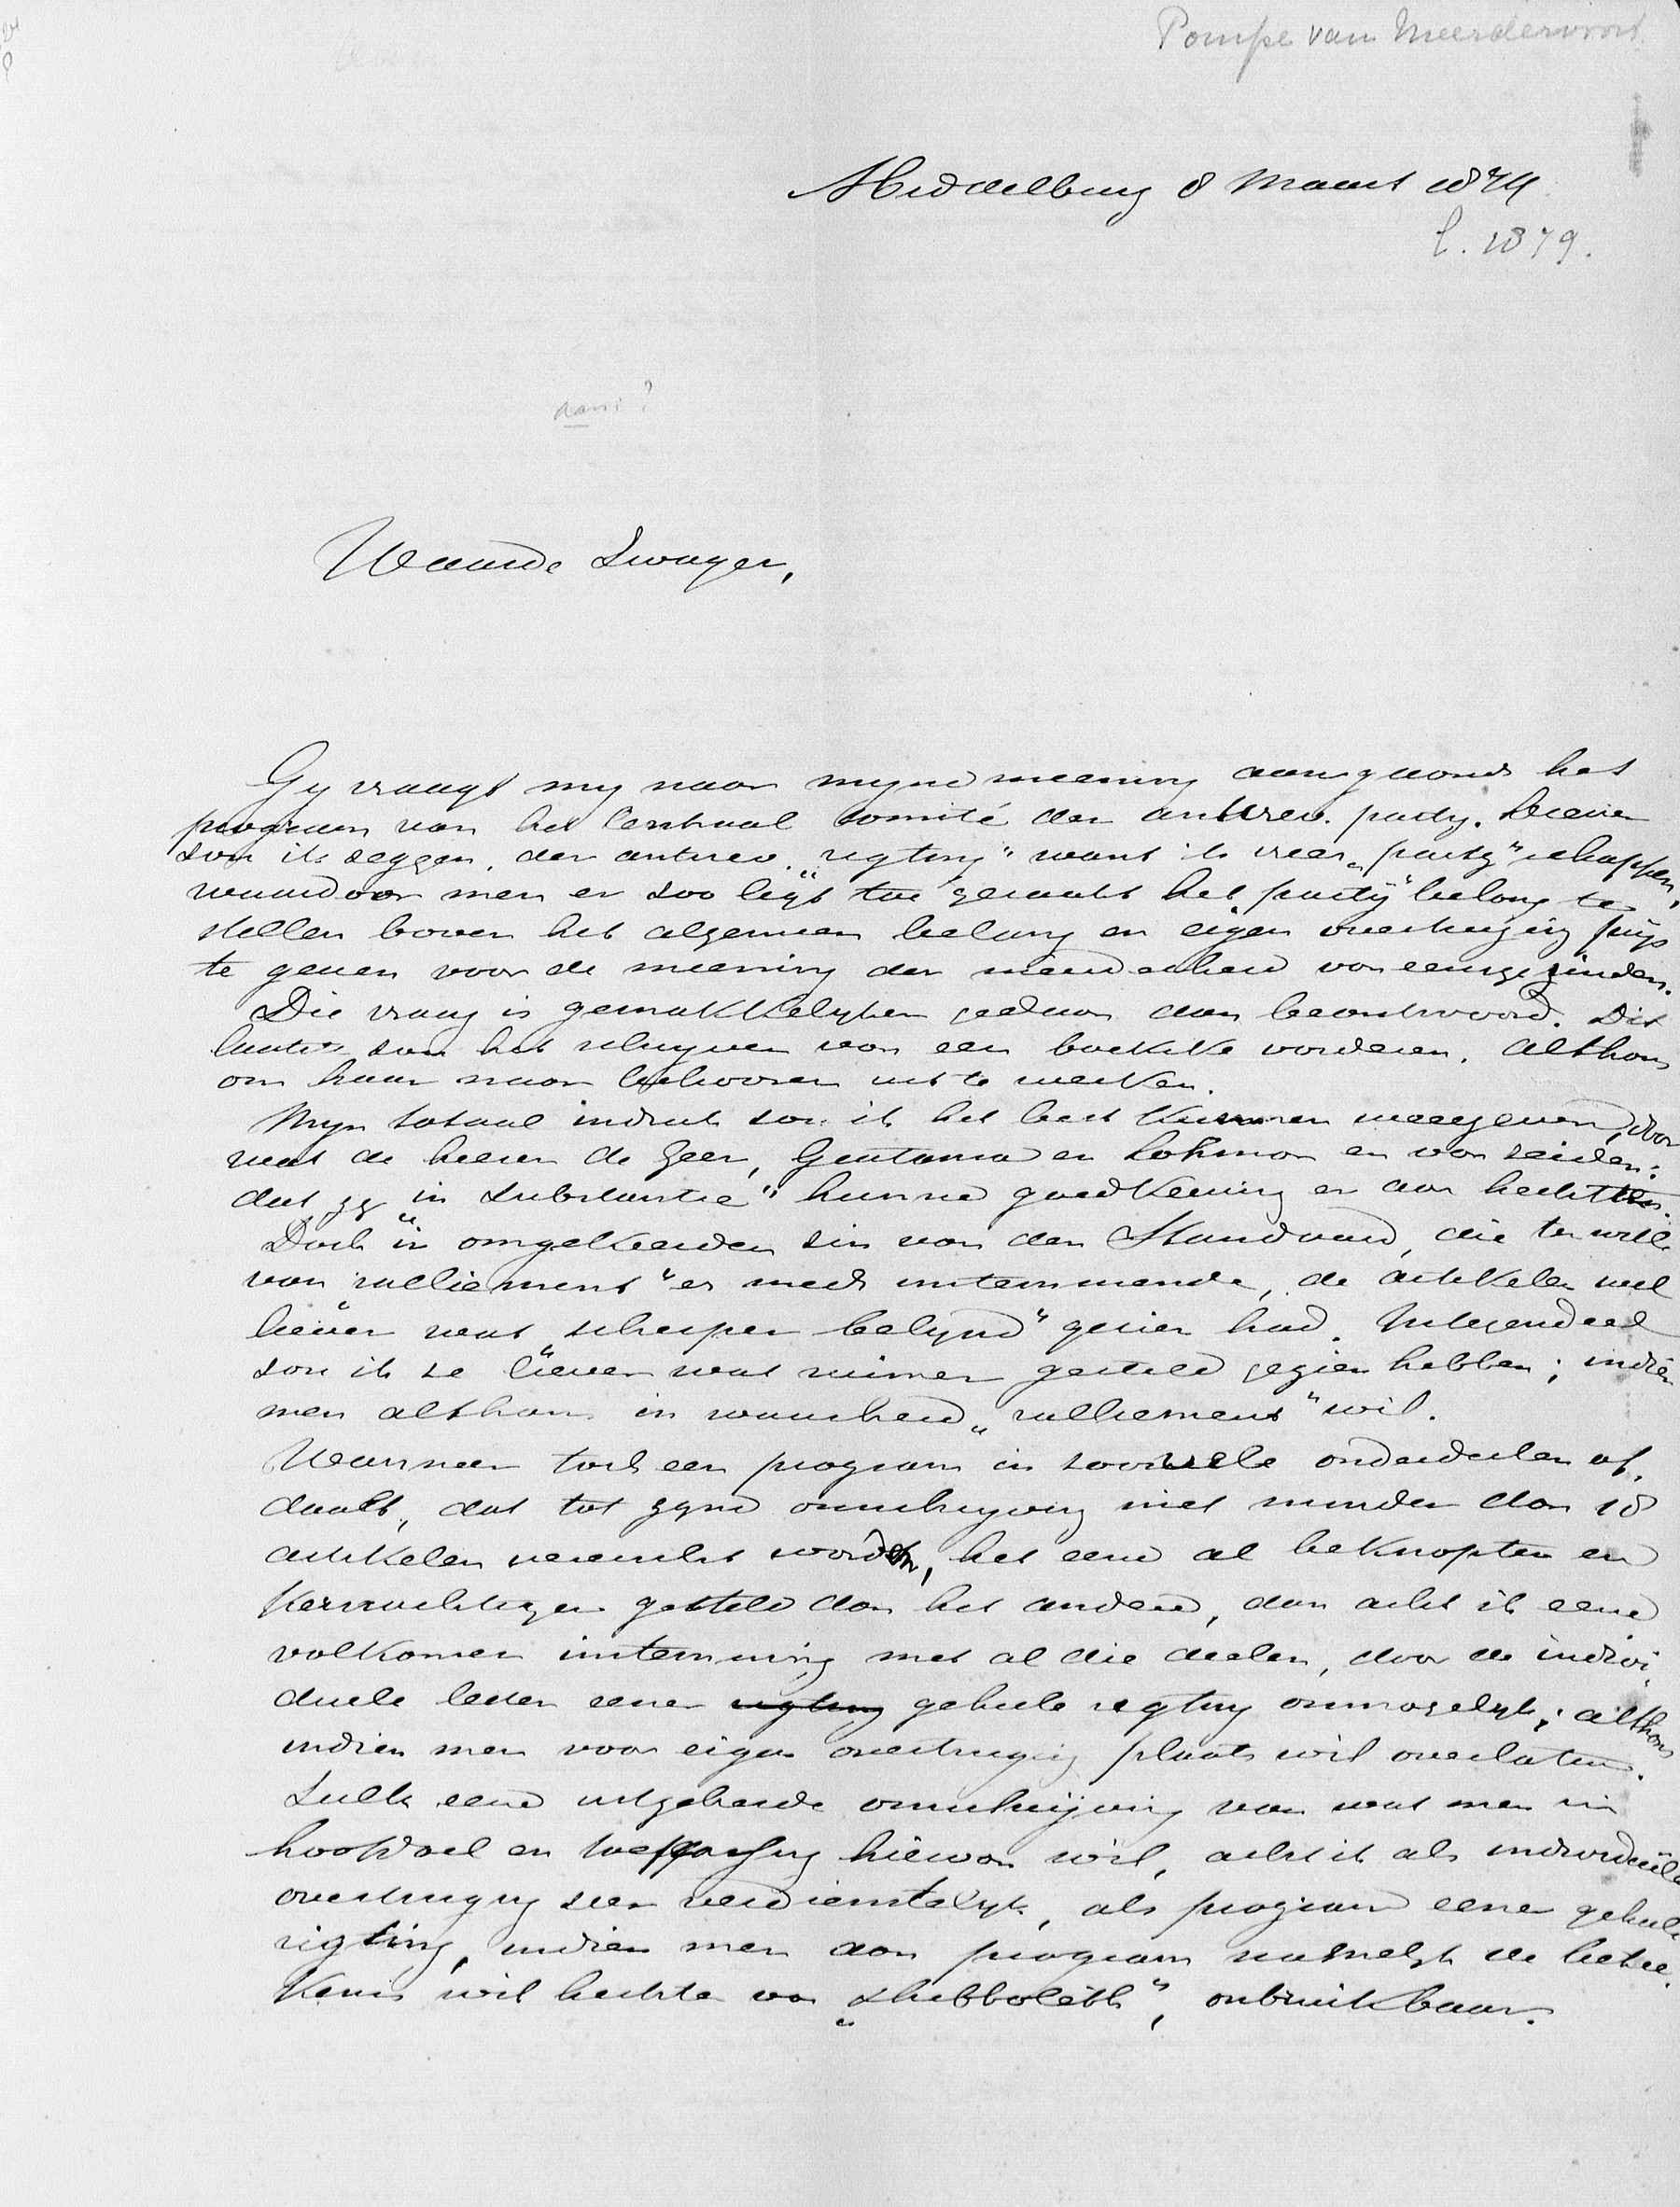 Pompe van Meerdervoort
Middelburg 8 Maart 1874
l. 1879.
aans?
Waarde Zwager,
Gy vraagt my naar myne meening aangaande het
program van het Centraal Comité der antirev. party. Liever
zou ik zeggen, der antirev. „rigting" want ik vrees „party"schappen,
waardoor men er zoo ligt toe geraakt het „party"belang te
stellen boven het algemeen belang en eigen overtuiging prijs
te geven voor de meening der meerderheid van eensgezinden.
Die vraag is gemakkelyker gedaan dan beantwoord. Dit
laatste zou het schryven van een boekske vorderen. Althans
om haar naar behooren uit te werken.
Myn totaal indruk zou ik het best kunnen weergeven, door
wat de heeren de Geer, Gratama en Lohman er van zeiden:
dat zy „in substantie" hunne goedkeuring er aan hechtten.
Doch in omgekeerden zin van den Standaard, die ter wille
van „ralliement" er mede instemmende, de artikelen wel
liever wat „scherper belynd" gezien had. Integendeel
zou ik ze liever wat ruimer gesteld gezien hebben; indien
men althans in waarheid „ralliement" wil.
Wanneer toch een program in zoovele onderdeelen af-
daalt, dat tot zyne omschryving niet minder dan 18
artikelen vereischt worden, het eene al beknopter en
kernachtiger gesteld dan het andere, dan acht ik eene
volkomen instemming met al die deelen, door de indivi-
duele leden eener rigting geheele rigting onmogelyk; althans
indien men voor eigen overtuiging plaats wil overlaten.
Zulk eene uitgebreide omschrijving van wat men in
hoofddoel en toepassing hiervan wil, acht ik als individuële
overtuiging zeer verdienstelyk, als program eener geheele
rigting, indien men aan program namelyk de betee-
kenis wil hechten van „Shibboleth", onbruikbaar.